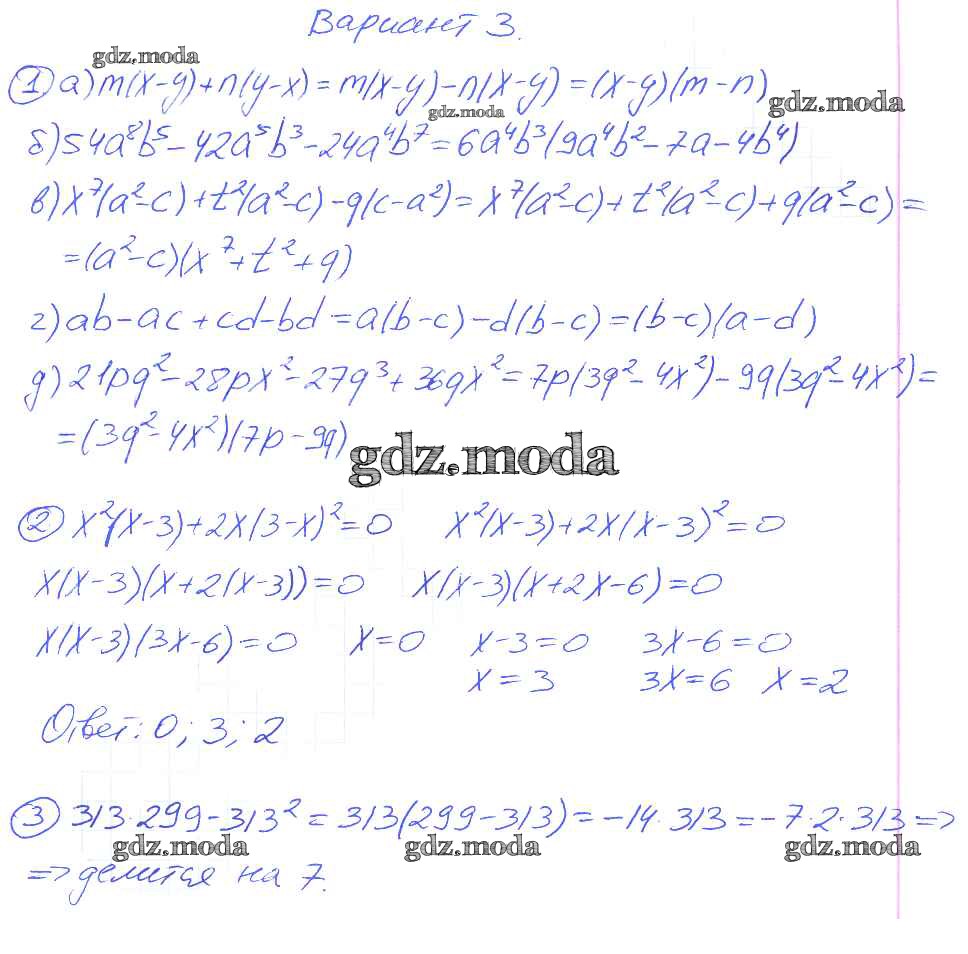 Вариант 3.
gdz.moda
① а) m(x-y)+n(y-x)=m(x-y)-n(x-y)=(x-y)(m-n)
gdz.moda gdz.moda
б) 54a⁸b⁵-42a⁵b³-24a⁴b⁷=6a⁴b³(9a⁴b²-7a-4b⁴)
в) x⁷(a²-c)+t²(a²-c)-q(c-a²)=x⁷(a²-c)+t²(a²-c)+q(a²-c)=
=(a²-c)(x⁷+t²+q)
г) ab-ac+cd-bd=a(b-c)-d(b-c)=(b-c)(a-d)
д) 21pq²-28px²-27q³+36qx²=7p(3q²-4x²)-9q(3q²-4x²)=
=(3q²-4x²)(7p-9q)
gdz.moda
② x²(x-3)+2x(3-x)²=0 x²(x-3)+2x(x-3)²=0
x(x-3)(x+2(x-3))=0 x(x-3)(x+2x-6)=0
x(x-3)(3x-6)=0 x=0 x-3=0 3x-6=0
x=3 3x=6 x=2
Ответ: 0; 3; 2
③ 313·299-313²=313(299-313)=-14·313=-7·2·313=>
gdz.moda gdz.moda gdz.moda
=> делится на 7.